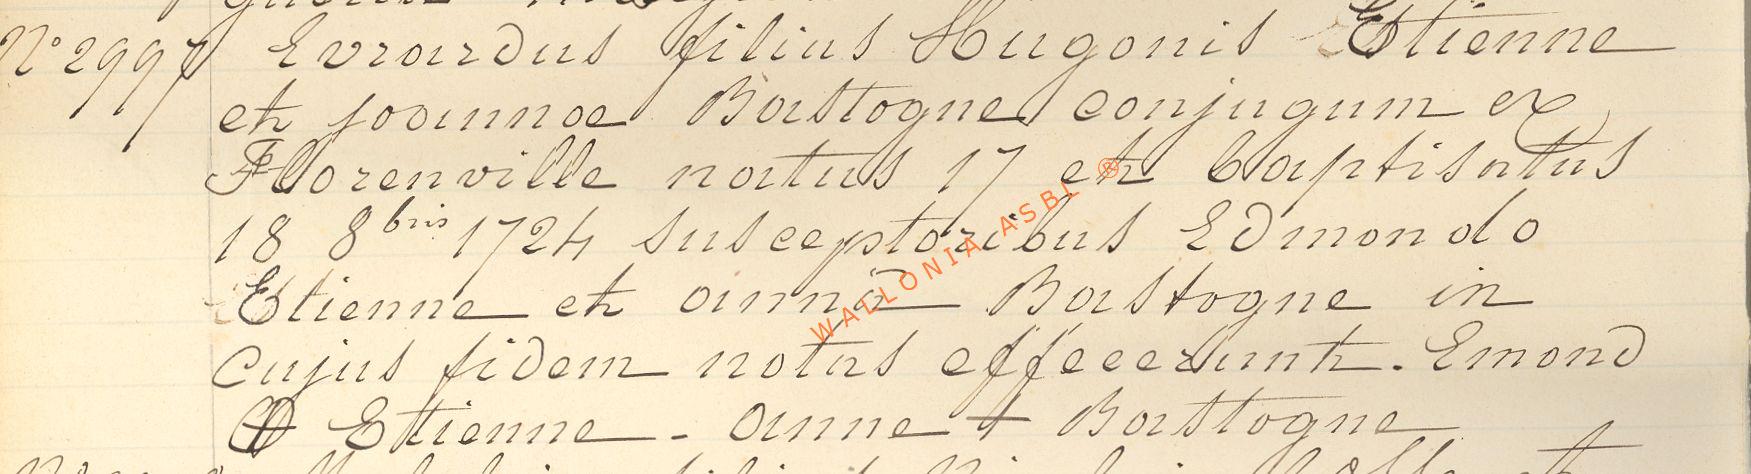 N° 2997 Evrardus filius Hugonis Etienne
et joannae Bastogne conjugum ex
Florenville natus 17 et baptisatus
18 8bris 1724 susceptoribus Edmondo
Etienne et annâ Bastogne in
cujus fidem notas effecerunt. Emond
Etienne - anne + Bastogne
WALLONIA ASBL ®